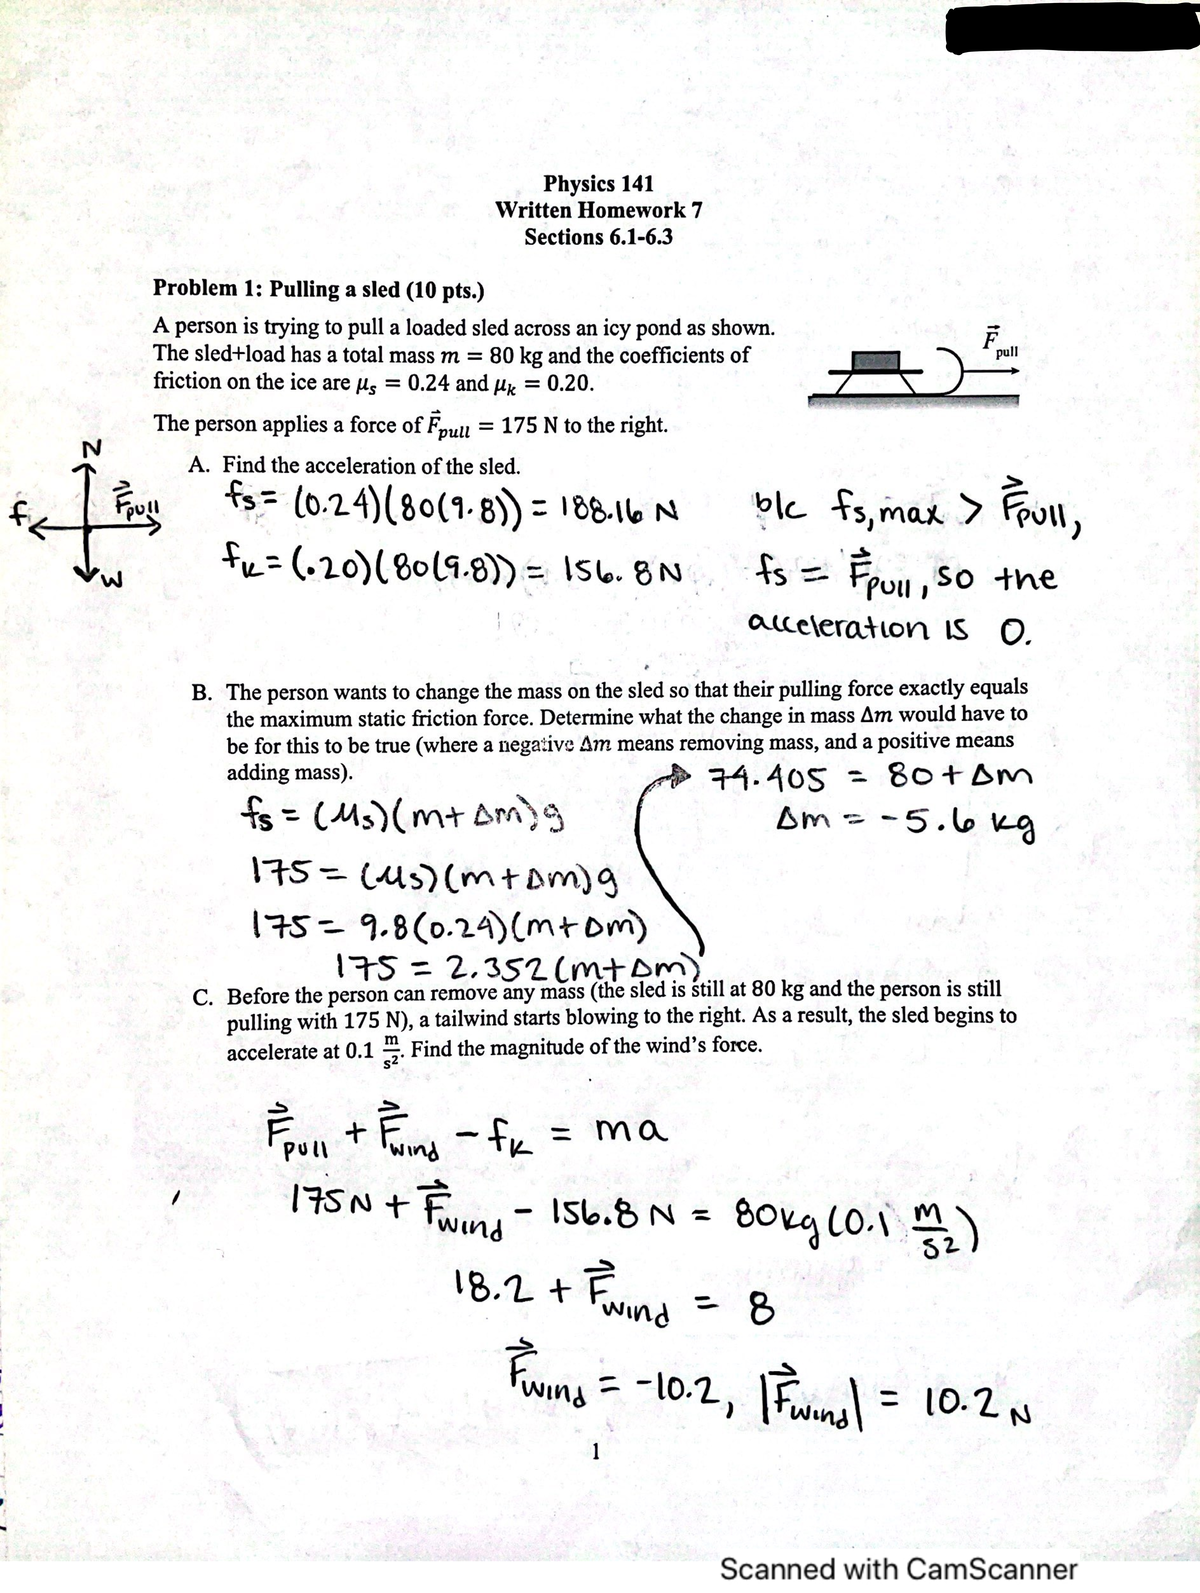 Physics 141
Written Homework 7
Sections 6.1-6.3
Problem 1: Pulling a sled (10 pts.)
A person is trying to pull a loaded sled across an icy pond as shown.
The sled+load has a total mass m = 80 kg and the coefficients of
friction on the ice are μs = 0.24 and μk = 0.20.
F⃗pull
The person applies a force of F⃗pull = 175 N to the right.
N
f
F⃗pull
W
A. Find the acceleration of the sled.
fs = (0.24)(80(9.8)) = 188.16 N
fk = (.20)(80(9.8)) = 156.8 N
b/c fs,max > F⃗pull,
fs = F⃗pull, so the
acceleration is 0.
B. The person wants to change the mass on the sled so that their pulling force exactly equals
the maximum static friction force. Determine what the change in mass Δm would have to
be for this to be true (where a negative Δm means removing mass, and a positive means
adding mass).
fs = (μs)(m+Δm)g
175 = (μs)(m+Δm)g
175 = 9.8(0.24)(m+Δm)
175 = 2.352(m+Δm)
74.405 = 80+Δm
Δm = -5.6 kg
C. Before the person can remove any mass (the sled is still at 80 kg and the person is still
pulling with 175 N), a tailwind starts blowing to the right. As a result, the sled begins to
accelerate at 0.1 m/s². Find the magnitude of the wind's force.
F⃗pull + F⃗wind - fk = ma
175N + F⃗wind - 156.8 N = 80kg(0.1 m/s²)
18.2 + F⃗wind = 8
F⃗wind = -10.2, |F⃗wind| = 10.2 N
1
Scanned with CamScanner